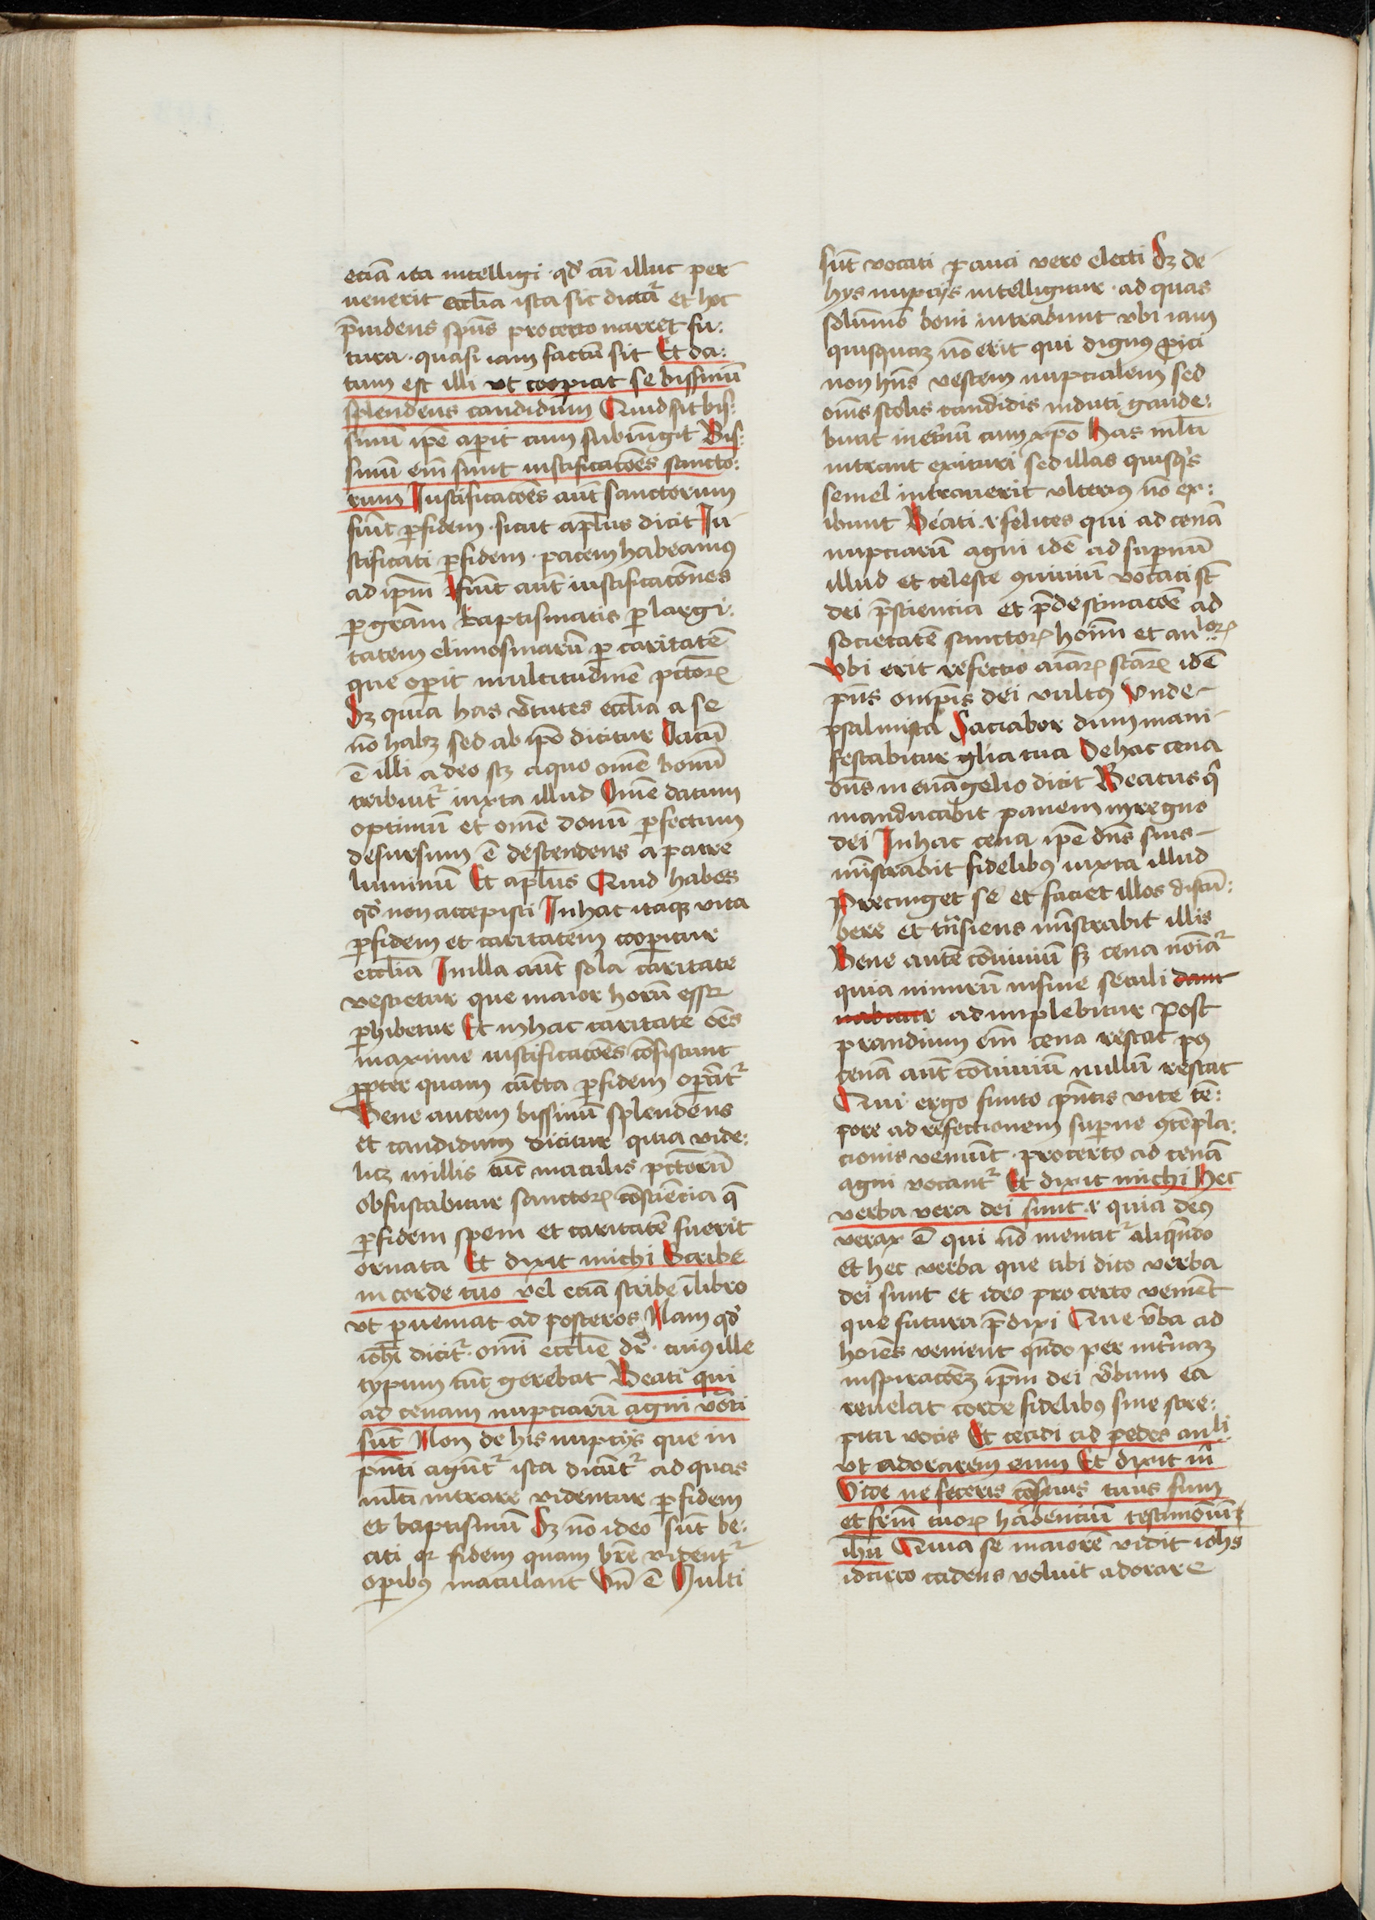 eciā ita intelligi · qd' cū illuc per
uenerit eccl̄ia ista sic dictat᷑ et hoc
p̄uidens sp̄us procerto narret fu:
tura · quasi iam factū sit Et da:
tum est illi vt cooperiat se bissinū
splendens candidum Quid sit bis:
sinū ip̄e aperit cum subiungit Bis:
sinū em̄ sunt iustificatōes sancto:
rum Iustificacōes aūt sanctorum
sūnt ꝑfidem · sicut apl̄us dicit Iu
stificati ꝑfidem · pacem habeamus
ad ip̄m Sunt aūt iustificatōnes
ꝑ grām baptismatis ꝑ largi:
tatem elimosinarū ꝑ caritatē
que oꝑit multitudinē pctōrꝝ
Sꝫ quia has v̄tutes eccl̄ia a se
nō habꝫ sed ab ip̄o dicitur Datū
ē illi a deo scꝫ a quo omē bonū
tribuit᷑ iuxta illud Omē datum
optimū et omē donū ꝑfectum
desursum ē descendens a patre
luminū Et apl̄us Quid habes
qd' non accepisti In hac itaqꝫ vita
ꝑfidem et caritatem cooperitur
eccl̄ia In illa aūt sola caritate
vestietur que maior horū esse
ꝑhibetur Et in hac caritate oēs
maxime iustificacōes cōsistunt
ꝓpter quam cūcta ꝑfidem oꝑāt᷑
Bene autem bissinū splendens
et candidum dicitur quia vide:
licꝫ nullis tūc maculis pctōrū
obfuscabitur sanctorꝝ cōsciencia q̄
ꝑfidem spem et caritatē fuerit
ornata Et dixit michi Scribe
in corde tuo vel eciā scribe ī libro
vt ꝑueniat ad posteros Nam qd'
ioh̄i dicit᷑ · omī eccl̄ie dr̄ · cuiꝯ ille
typum tūc gerebat Beati qui
ad cenam nupciarū agni vocati
sūt Non de his nupcijs que in
pn̄ti agūt᷑ ista dicūt᷑ ad quas
ml̄ti intrare videntur ꝑ fidem
et baptismū Sꝫ nō ideo sūt be:
ati qꝛ fidem quam bn̄e vident᷑
oꝑibꝯ maculant Vn̄ ē Multi
sūt vocati pauci vero electi Sꝫ de
hys nupcijs intelligitur · ad quas
solūmō boni intrabunt vbi iam
quisquaꝫ nō erit qui dignꝯ ꝓici
non hn̄s vestem nupcialem sed
oēs stolis candidis induti gaude:
bunt in et̄nū cum xp̄o Has ml̄ti
intrant exituri sed illas quisq̄s
semel intrauerit vlteriꝯ nō ex:
ibunt Beati · r̄ felices qui ad cenā
nupciarū agni idē ad suꝑnū
illud et celeste ꝯuiuiū vocati st̄
dei p̄sciencia et p̄destinacōe ad
societatē sanctorꝝ hoīm et anḡlorꝝ
Vbi erit refectio aīarꝝ scārꝝ idē
pn̄s om̄ps dei vultꝯ Vnde
psalmista Saciabor dum mani
festabitur glīa tua De hac cena
dn̄s in euāgelio dicit Beatus q̄
manducabit panem in regno
dei In hac cena ip̄e dn̄s suis
mīstrabit fidelibꝯ iuxta illud
Precinget se et faciet illos discū:
bere et trn̄siens mīstrabit illis
Bene autē cōuiuiū sꝫ cena noīat᷑
quia nimirū in fine seculi dam
nabitur adimplebitur Post
prandium em̄ cena restat pꝯ
cenā aūt cōuiuiū nullū restat
Qui ergo finito pn̄tis vite tē:
pore ad refectionem suꝑne ꝯtēpla:
cionis veniūt · procerto ad cenā
agni vocant᷑ Et dixit michi Hec
verba vera dei sunt · r̄ quia deꝯ
verax ē qui nō mentit᷑ aliqn̄do
Et hec verba que tibi dico verba
dei sunt et ideo pro certo veniēt
que futura p̄dixi Que v̄ba ad
hoīes venient qn̄do per int̄naꝫ
inspiracōeꝫ ip̄m dei v̄bum ea
reuelat corde fidelibꝯ sine stre:
pitu vocis Et cecidi ad pedes angl̄i
vt adorarem eum Et dixit m̄
Vide ne feceris cōseruꝯ tuus sum
et fr̄m tuorꝝ habentiū testimōiū
ih̄u Quia se maiorē vidit ioh̄s
idcirco cadens voluit adorare